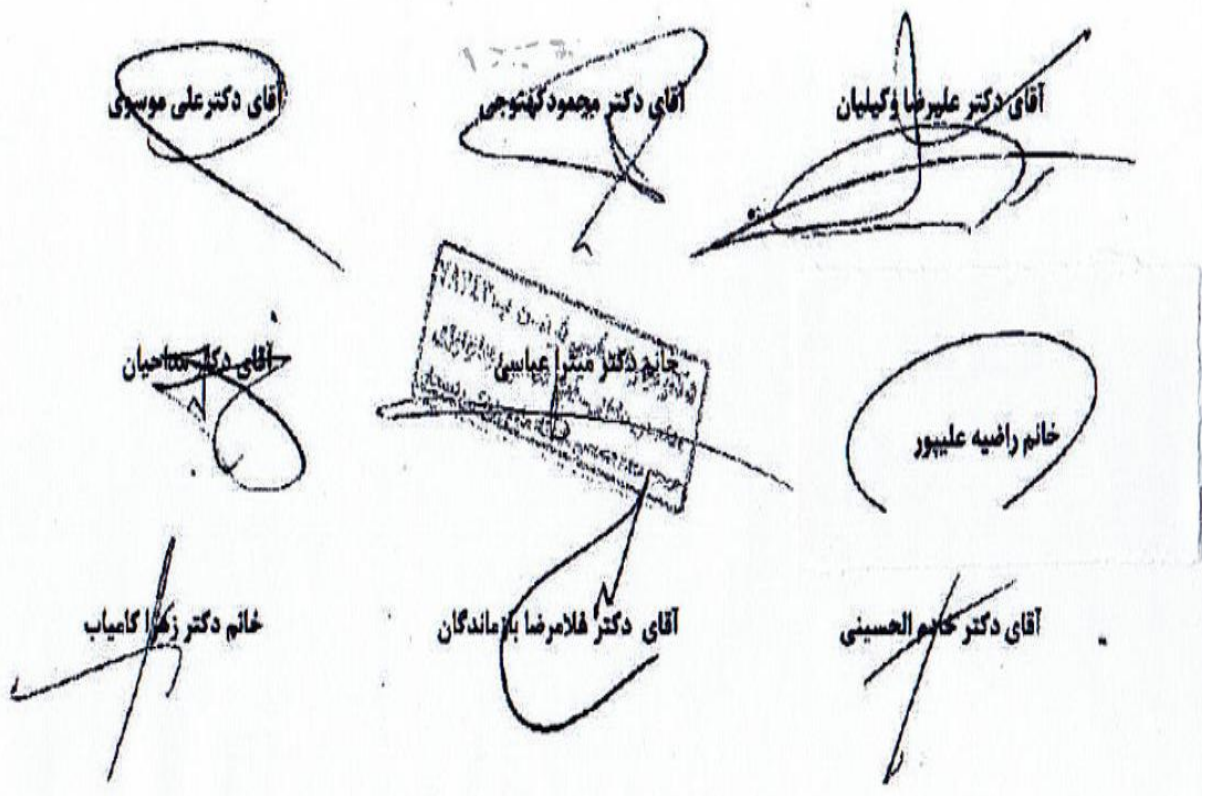 آقای دکتر علیرضا وکیلیان
آقای دکتر محمود کهتوجی
آقای دکتر علی موسوی
خانم راضیه علیپور
خانم دکتر میترا عباسی
آقای دکتر مداحیان
آقای دکتر کاظم الحسینی
آقای دکتر غلامرضا بازماندگان
خانم دکتر زهرا کامیاب